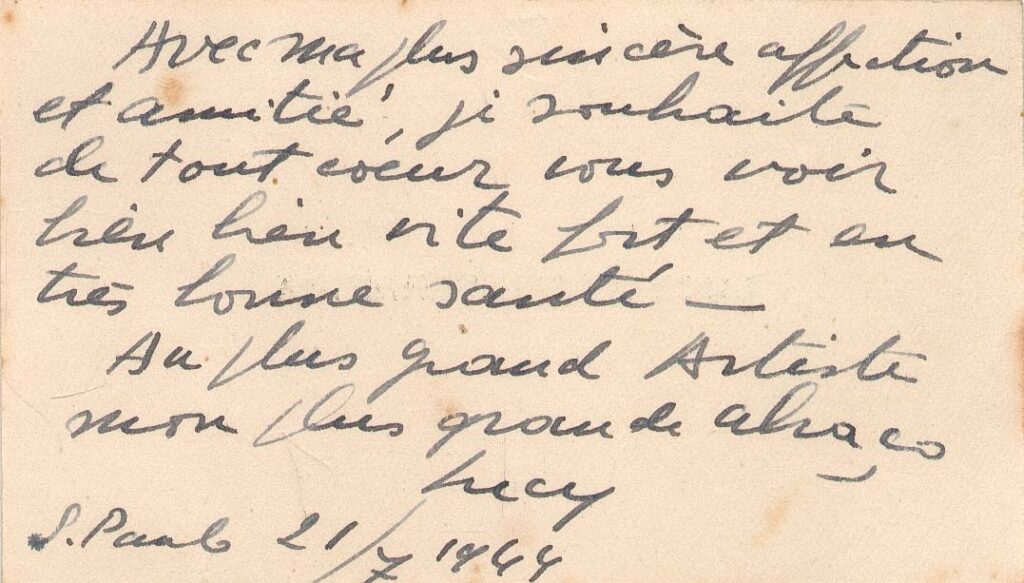 Avec ma plus sincère affection
et amitié, je souhaite
de tout coeur vous voir
bièn bièn vite fort et en
très bonne santé —
Au plus grand Artiste
mon plus grande abraço
Lucy
S. Paulo 21/7 1944